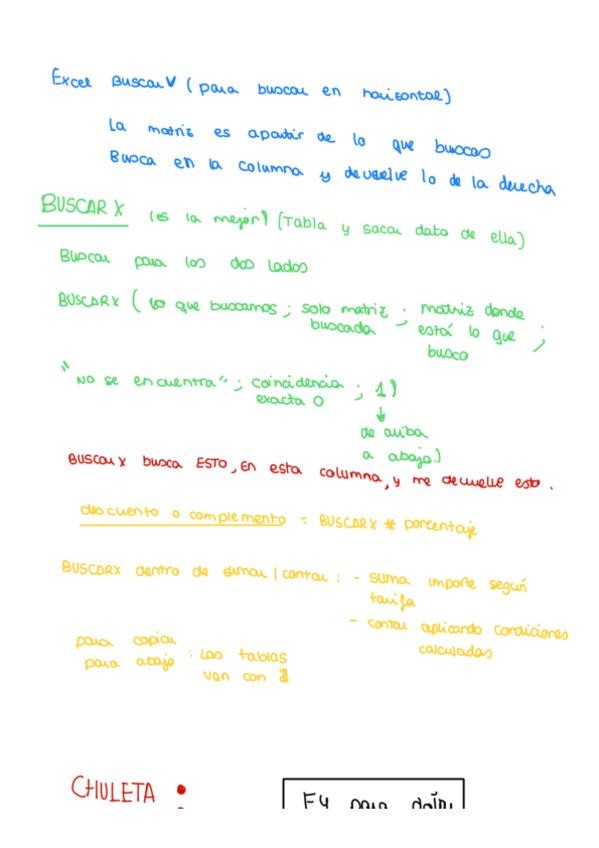 Excel BuscarV (para buscar en horizontal)
La matriz es apartir de lo que buscas
Busca en la columna y devuelve lo de la derecha
BUSCAR X (es la mejor) (Tabla y sacar dato de ella)
Buscar para los dos lados
BUSCARX ( lo que buscamos ; solo matriz buscada ; matriz donde está lo que busco ;
"No se encuentra" ; coincidencia exacta 0 ; 1)
↓
de arriba
a abajo.)
BUSCAR X busca ESTO, EN esta columna, y me devuelve esto.
descuento o complemento = BUSCARX * porcentaje
BUSCARX dentro de sumar / contar : - suma importe según tarifa
- contar aplicando condiciones calculadas
para copiar
para abajo : Las tablas
van con $
CHULETA :
F4 para